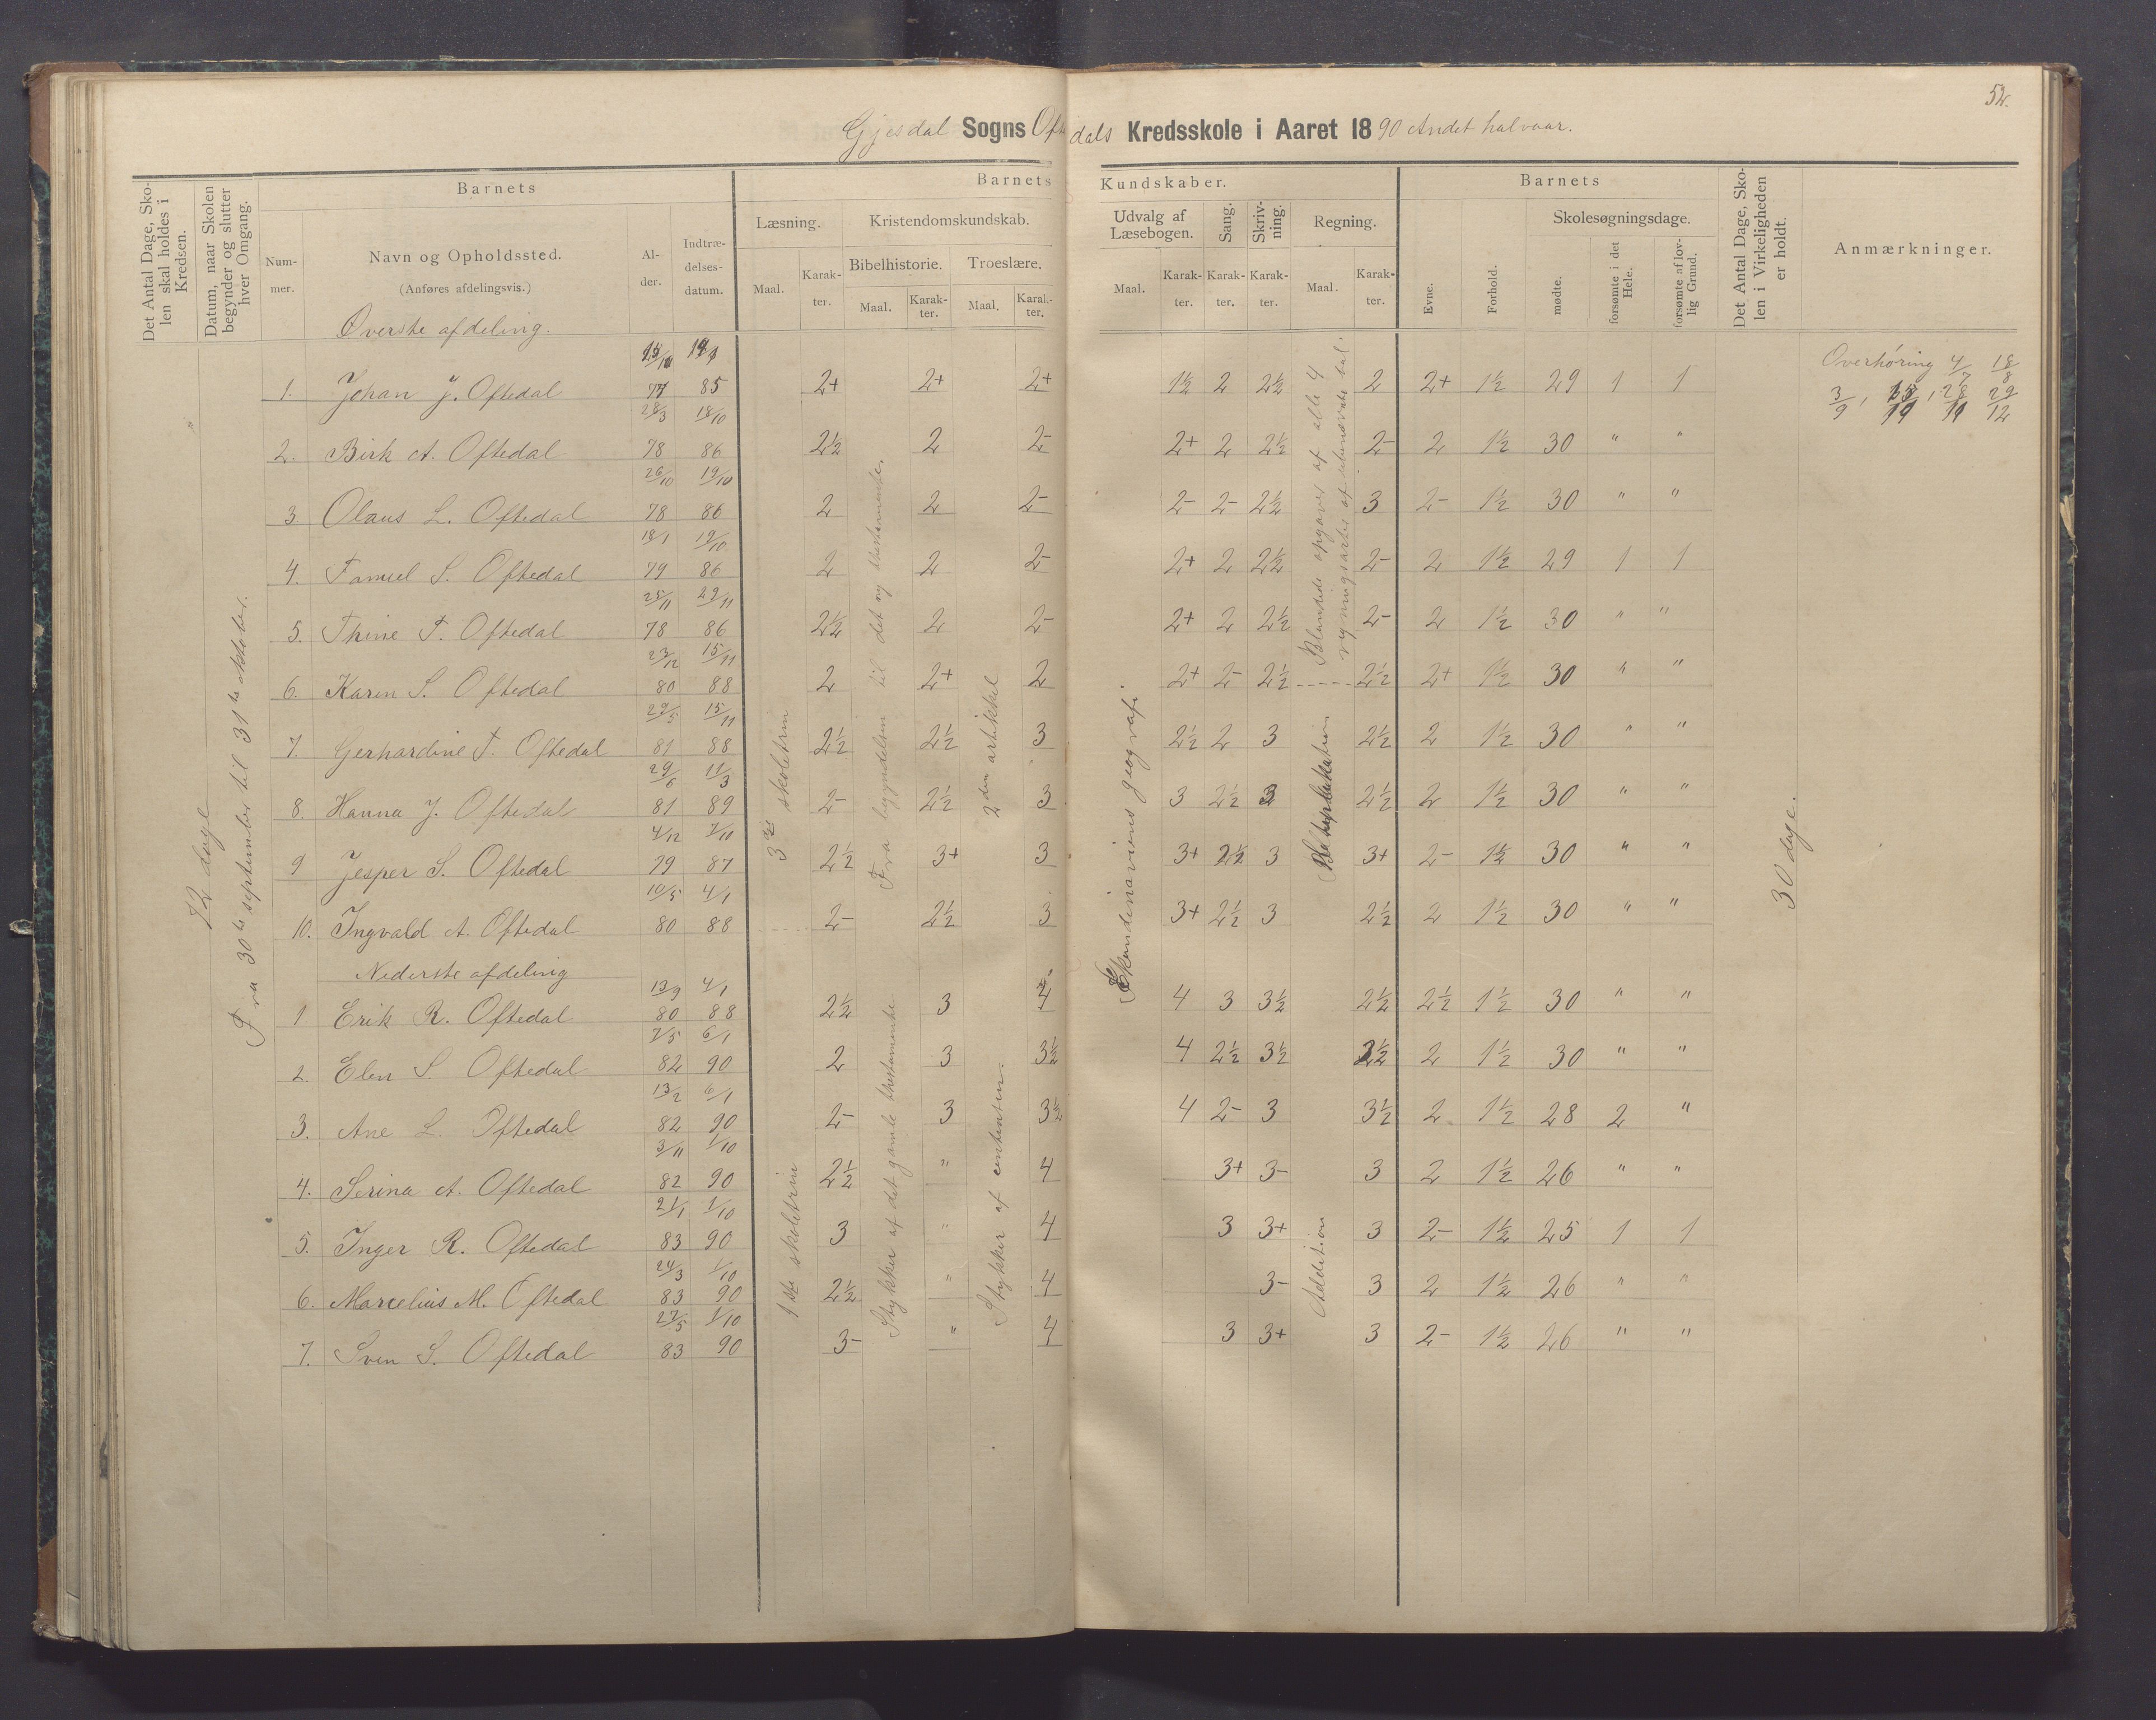 52.
Gjesdal Sogns Oftedals Kredsskole i Aaret 1890 Andet halvaar.
Det Antal Dage, Skolen skal holdes i Kredsen.
Datum, naar Skolen begynder og slutter hver Omgang.
Barnets
Nummer.
Navn og Opholdssted.
(Anføres afdelingsvis.)
Alder.
Indtrædelsesdatum.
Barnets Kundskaber.
Læsning.
Maal.
Karakter.
Kristendomskundskab.
Bibelhistorie.
Maal.
Karakter.
Troeslære.
Maal.
Karakter.
Udvalg af Læsebogen.
Maal.
Karakter.
Sang.
Karakter.
Skrivning.
Karakter.
Regning.
Maal.
Karakter.
Barnets
Evne.
Forhold.
Skolesøgningsdage.
mødte.
forsømte i det Hele.
forsømte af lovlig Grund.
Det Antal Dage, Skolen i Virkeligheden er holdt.
Anmærkninger.
72 dage
Fra 30te september til 31te oktober.
Øverste afdeling.
1. Johan J. Oftedal 77 85 2+ 2+ 2+ 1½ 2 2½ 2 2+ 1½ 29 1 1
2. Birk A. Oftedal 28/3 78 18/10 86 2½ 2 2- 2+ 2 2½ 2- 2 1½ 30 " "
3 Olaus L. Oftedal 26/10 78 19/10 86 2 2 2- 2- 2- 2½ 3 2- 1½ 30 " "
4. Samuel S. Oftedal 18/1 79 19/10 86 2 2 2- 2+ 2 2½ 2- 2 1½ 29 1 1
5. Thine T. Oftedal 25/11 78 29/11 86 2½ 2 2- 2+ 2 2½ 2- 2 1½ 30 " "
6. Karen S. Oftedal 23/12 80 15/11 88 2 2+ 2 2+ 2- 2½ 2½ 2+ 1½ 30 " "
7. Gerhardine T. Oftedal 29/5 81 15/11 88 2½ 2½ 3 2½ 2 3 2½ 2 1½ 30 " "
8. Hanna J. Oftedal 29/6 81 11/3 89 2- 2½ 3 3 2½ 3 2½ 2 1½ 30 " "
9 Jesper S. Oftedal 4/12 79 7/10 87 2½ 3+ 3 3+ 2½ 3 3+ 2- 1½ 30 " "
10. Ingvald A. Oftedal 10/5 80 4/1 88 2- 2½ 3 3+ 2½ 3 2½ 2 1½ 30 " "
3die skoletrin
Fra begyndelsen til det ny testamente.
2den artikkel
Skandinaviens geografi
Blandede opgaver af alle 4 regningsarter af ubenævnte tal.
30 dage.
Overhøring 4/7 18/8
3/9, 29/12
Nederste afdeling
1 Erik R. Oftedal 80 4/1 88 2½ 3 4 4 3 3½ 2½ 2½ 1½ 30 " "
2. Elen S. Oftedal 7/5 82 6/1 90 2 3 3½ 4 2½ 3½ 2½ 2 1½ 30 " "
3. Ane L. Oftedal 13/2 82 6/1 90 2- 3 3½ 4 2- 3 3½ 2 1½ 28 2 "
4. Serina A. Oftedal 3/11 82 1/10 90 2½ " 4 3+ 3- 3 2 1½ 26 " "
5. Inger R. Oftedal 21/1 83 1/10 90 3 " 4 3 3+ 3 2- 1½ 25 1 1
6. Marcelius M. Oftedal 24/3 83 1/10 90 2½ " 4 3- 3 2 1½ 26 " "
7. Sven S. Oftedal 27/5 83 1/10 90 3- " 4 3 3+ 3 2- 1½ 26 " "
1ste skoletrin
Stykker af det gamle thestamente
Stykker af
Addition